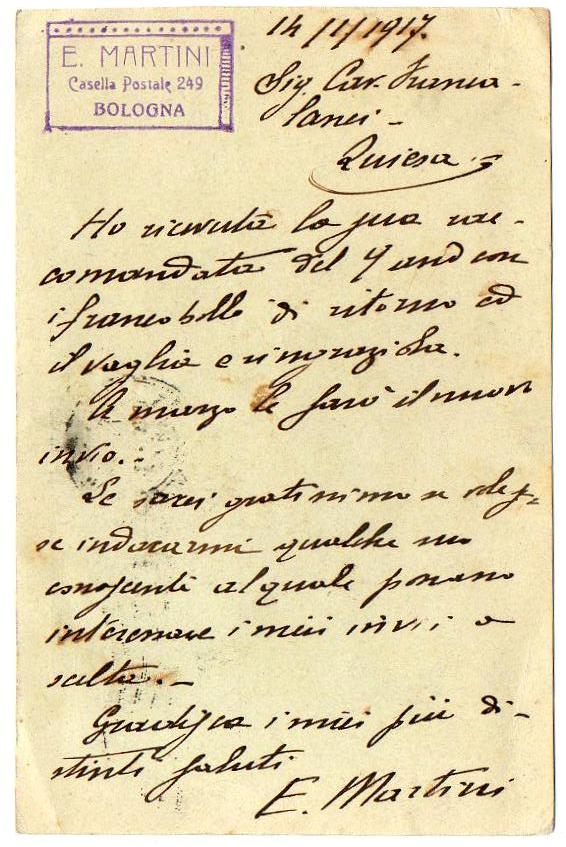 E. MARTINI
Casella Postale 249
BOLOGNA
14/1/1917.
Sig. Cav. Franca-
lanci -
Quiesa
Ho ricevuta la sua rac-
comandata del 9 and con
i francobolli di ritorno ed
il vaglia e ringraziola.
A marzo le farò il nuovo
invio. -
Le sarei gratissimo se voles-
se indicarmi qualche suo
conoscente al quale possano
interessare i miei invii a
scelta. -
Gradisca i miei più di-
stinti saluti
E. Martini